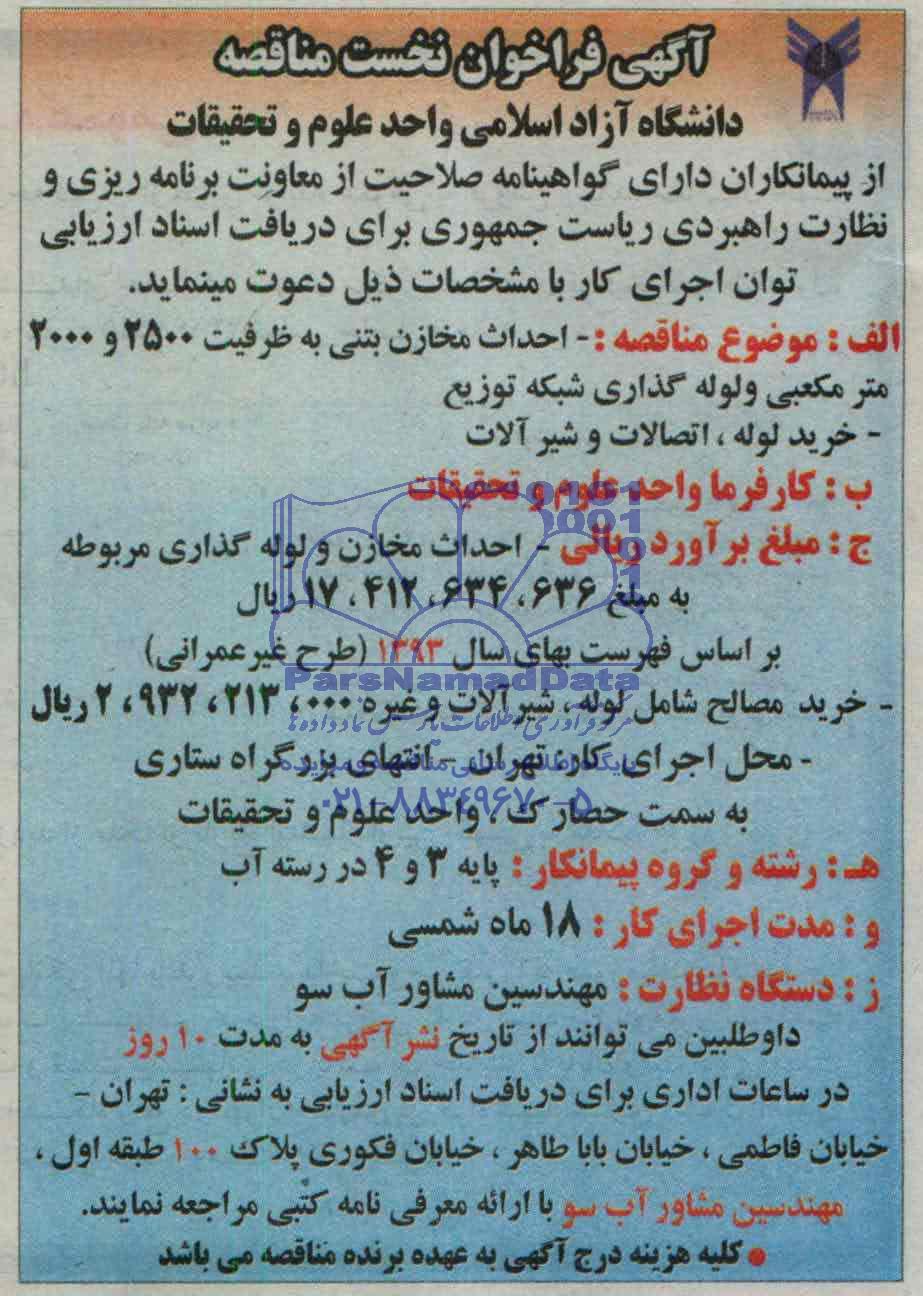 آگهی فراخوان نخست مناقصه
دانشگاه آزاد اسلامی واحد علوم و تحقیقات
از پیمانکاران دارای گواهینامه صلاحیت از معاونت برنامه ریزی و
نظارت راهبردی ریاست جمهوری برای دریافت اسناد ارزیابی
توان اجرای کار با مشخصات ذیل دعوت مینماید.
الف : موضوع مناقصه :- احداث مخازن بتنی به ظرفیت ۲۵۰۰ و ۲۰۰۰
متر مکعبی ولوله گذاری شبکه توزیع
- خرید لوله ، اتصالات و شیر آلات
ب : کارفرما واحد علوم و تحقیقات
ج : مبلغ برآورد ریالی - احداث مخازن و لوله گذاری مربوطه
به مبلغ ۶۳۶، ۶۳۴، ۴۱۲، ۱۷ ریال
بر اساس فهرست بهای سال ۱۳۹۳ (طرح غیرعمرانی)
ParsNamadData
- خرید مصالح شامل لوله، شیرآلات و غیره ۰۰۰، ۲۱۳، ۹۳۲، ۲ ریال
- محل اجرای کار: تهران - انتهای بزرگراه ستاری
۰۲۱-۸۸۳۴۹۶۷۰-۵
به سمت حصارک ، واحد علوم و تحقیقات
هـ : رشته و گروه پیمانکار : پایه ۳ و ۴ در رسته آب
و : مدت اجرای کار : ۱۸ ماه شمسی
ز : دستگاه نظارت : مهندسین مشاور آب سو
داوطلبین می توانند از تاریخ نشر آگهی به مدت ۱۰ روز
در ساعات اداری برای دریافت اسناد ارزیابی به نشانی : تهران -
خیابان فاطمی ، خیابان بابا طاهر ، خیابان فکوری پلاک ۱۰۰ طبقه اول ،
مهندسین مشاور آب سو با ارائه معرفی نامه کتبی مراجعه نمایند.
● کلیه هزینه درج آگهی به عهده برنده مناقصه می باشد